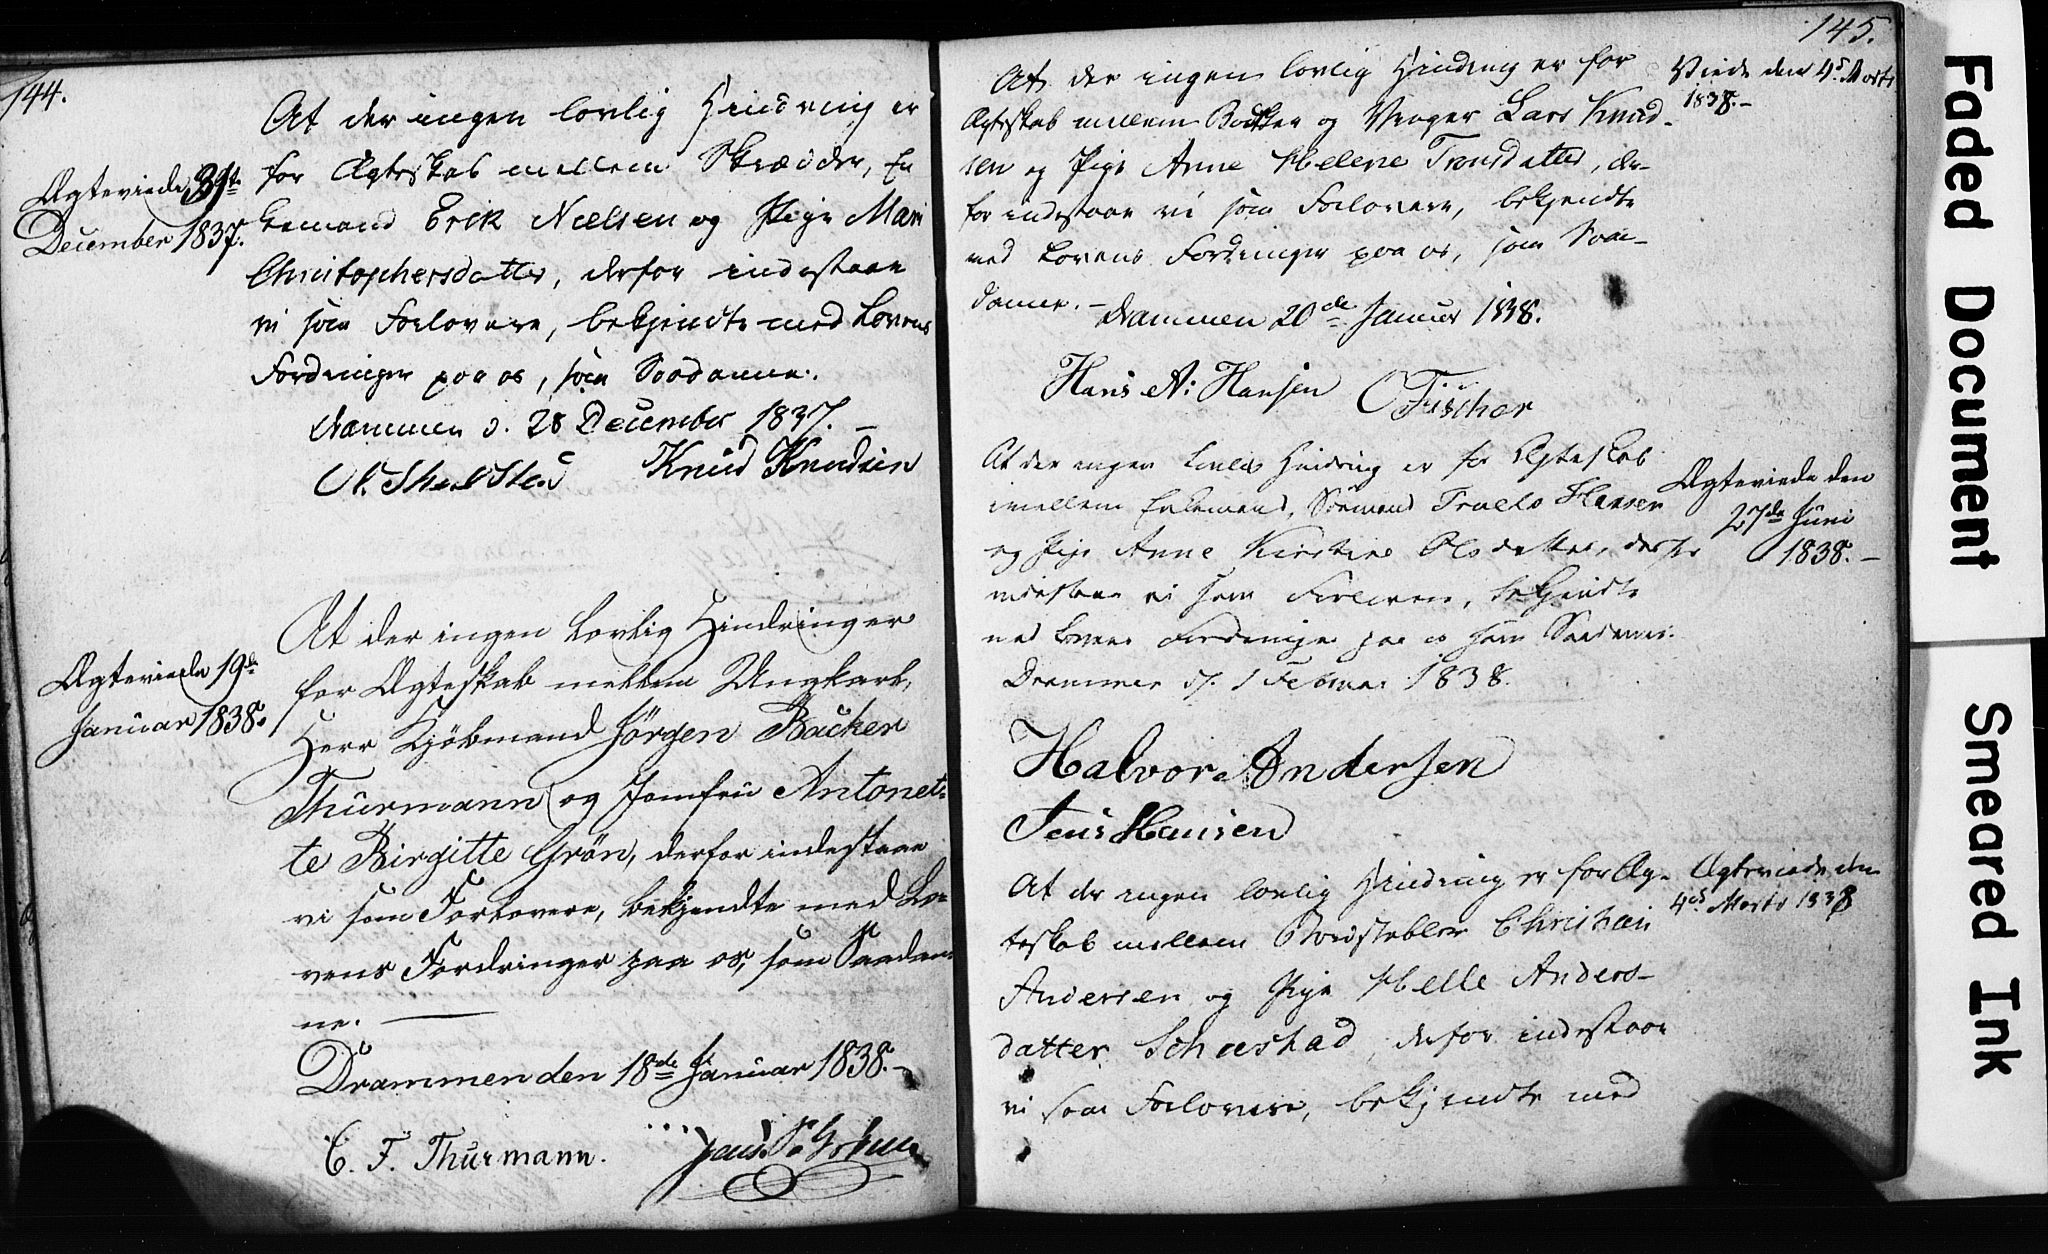 144.
Ægteviede 31te
December 1837.
At der ingen lovlig Hindring er
for Ægteskab mellem Skræder, En
kemand Erik Nielsen og Pige Mari
Christophersdatter, derfor indestaae
vi som Forlovere, bekjendte med Lovens
Fordringer paa os, som Saadanne.
Drammen d. 28 December 1837.
Knud Knudsen
Ægteviede 19de
Januar 1838.
At der ingen lovlig Hindring er
for Ægteskab mellem Ungkarl,
Herr Kjöbmand Jörgen Backer
Thurmann og Jomfru Antonet-
te Birgitte Grön, derfor indestaae
vi som Forlovere, bekjendte med Lo-
vens Fordringer paa os, som Saadan
ne.
Drammen den 18de Januar 1838.
C. F. Thurmann.
145.
At der ingen lovlig Hindring er for
Ægteskab mellem Bødker og Vrager Lars Knud-
sen og Pige Anne Helene Tronsdatter, der-
for indestaae vi som Forlovere, bekjendte
med Lovens Fordringer paa os, som Saa-
danne. – Drammen 20de Januar 1838.
Hans A: Hansen Fischer
Viede den 4de Marts
1838. –
At der ingen lovlig Hindring er for Ægteskab
imellem Enkemand, Sömand Truels Hansen
og Pige Anne Kirstine Olsdatter, derfor
indestaae vi som Forlovere, bekjendte
med Lovens Fordringer paa os som Saadanne.
Drammen d. 1 Februar 1838.
Halvor Andersen
Jens Hansen
Ægteviede den
27de Juni
1838. –
At der ingen lovlig Hindring er for Æg-
teskab mellem Christian
Andersen og Pige Helle Anders-
datter, derfor indestaae
vi som Forlovere, bekjendte med
Ægteviede den
4de Marts 1838
Faded Document
Smeared Ink